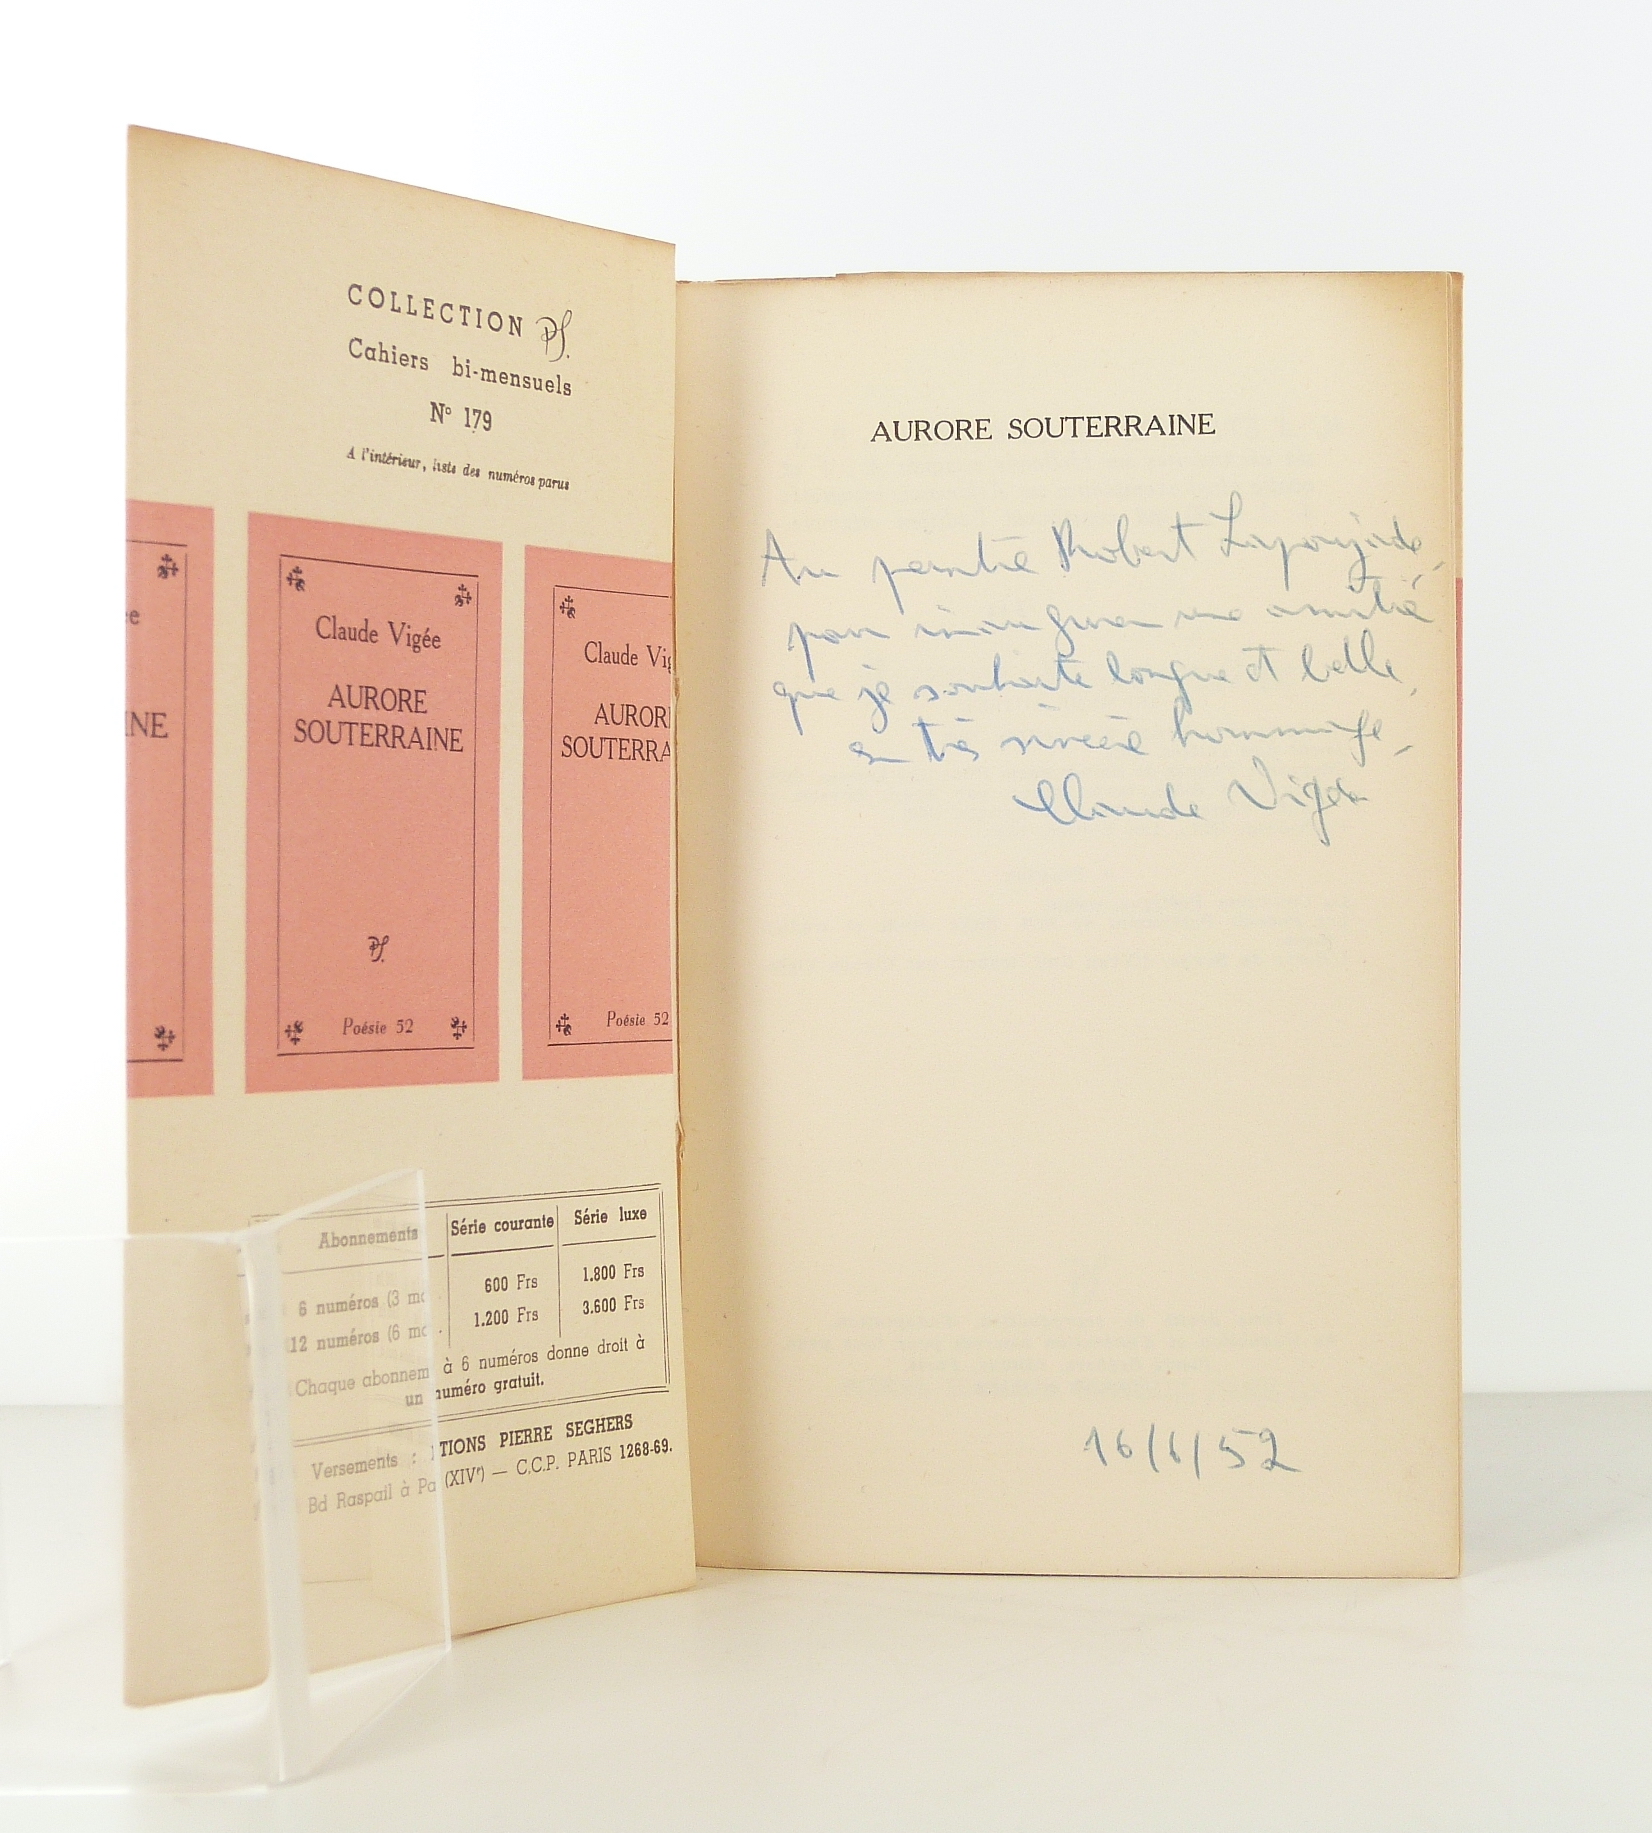 COLLECTION PS.
Cahiers bi-mensuels
N° 179
A l'intérieur, liste des numéros parus
ée
INE
Claude Vigée
AURORE
SOUTERRAINE
PS.
Poésie 52
Claude Vig
AUROR
SOUTERRA
Poésie 52
Abonnements Série courante Série luxe
6 numéros (3 mo 600 Frs 1.800 Frs
12 numéros (6 mo 1.200 Frs 3.600 Frs
Chaque abonnem à 6 numéros donne droit à
un numéro gratuit.
Versements : TIONS PIERRE SEGHERS
Bd Raspail à Pa (XIVe) — C.C.P. PARIS 1268-69.
AURORE SOUTERRAINE
Au peintre Robert Lapoujade,
pour inaugurer une amitié
que je souhaite longue et belle,
en très sincère hommage,
Claude Vigée
16/6/52